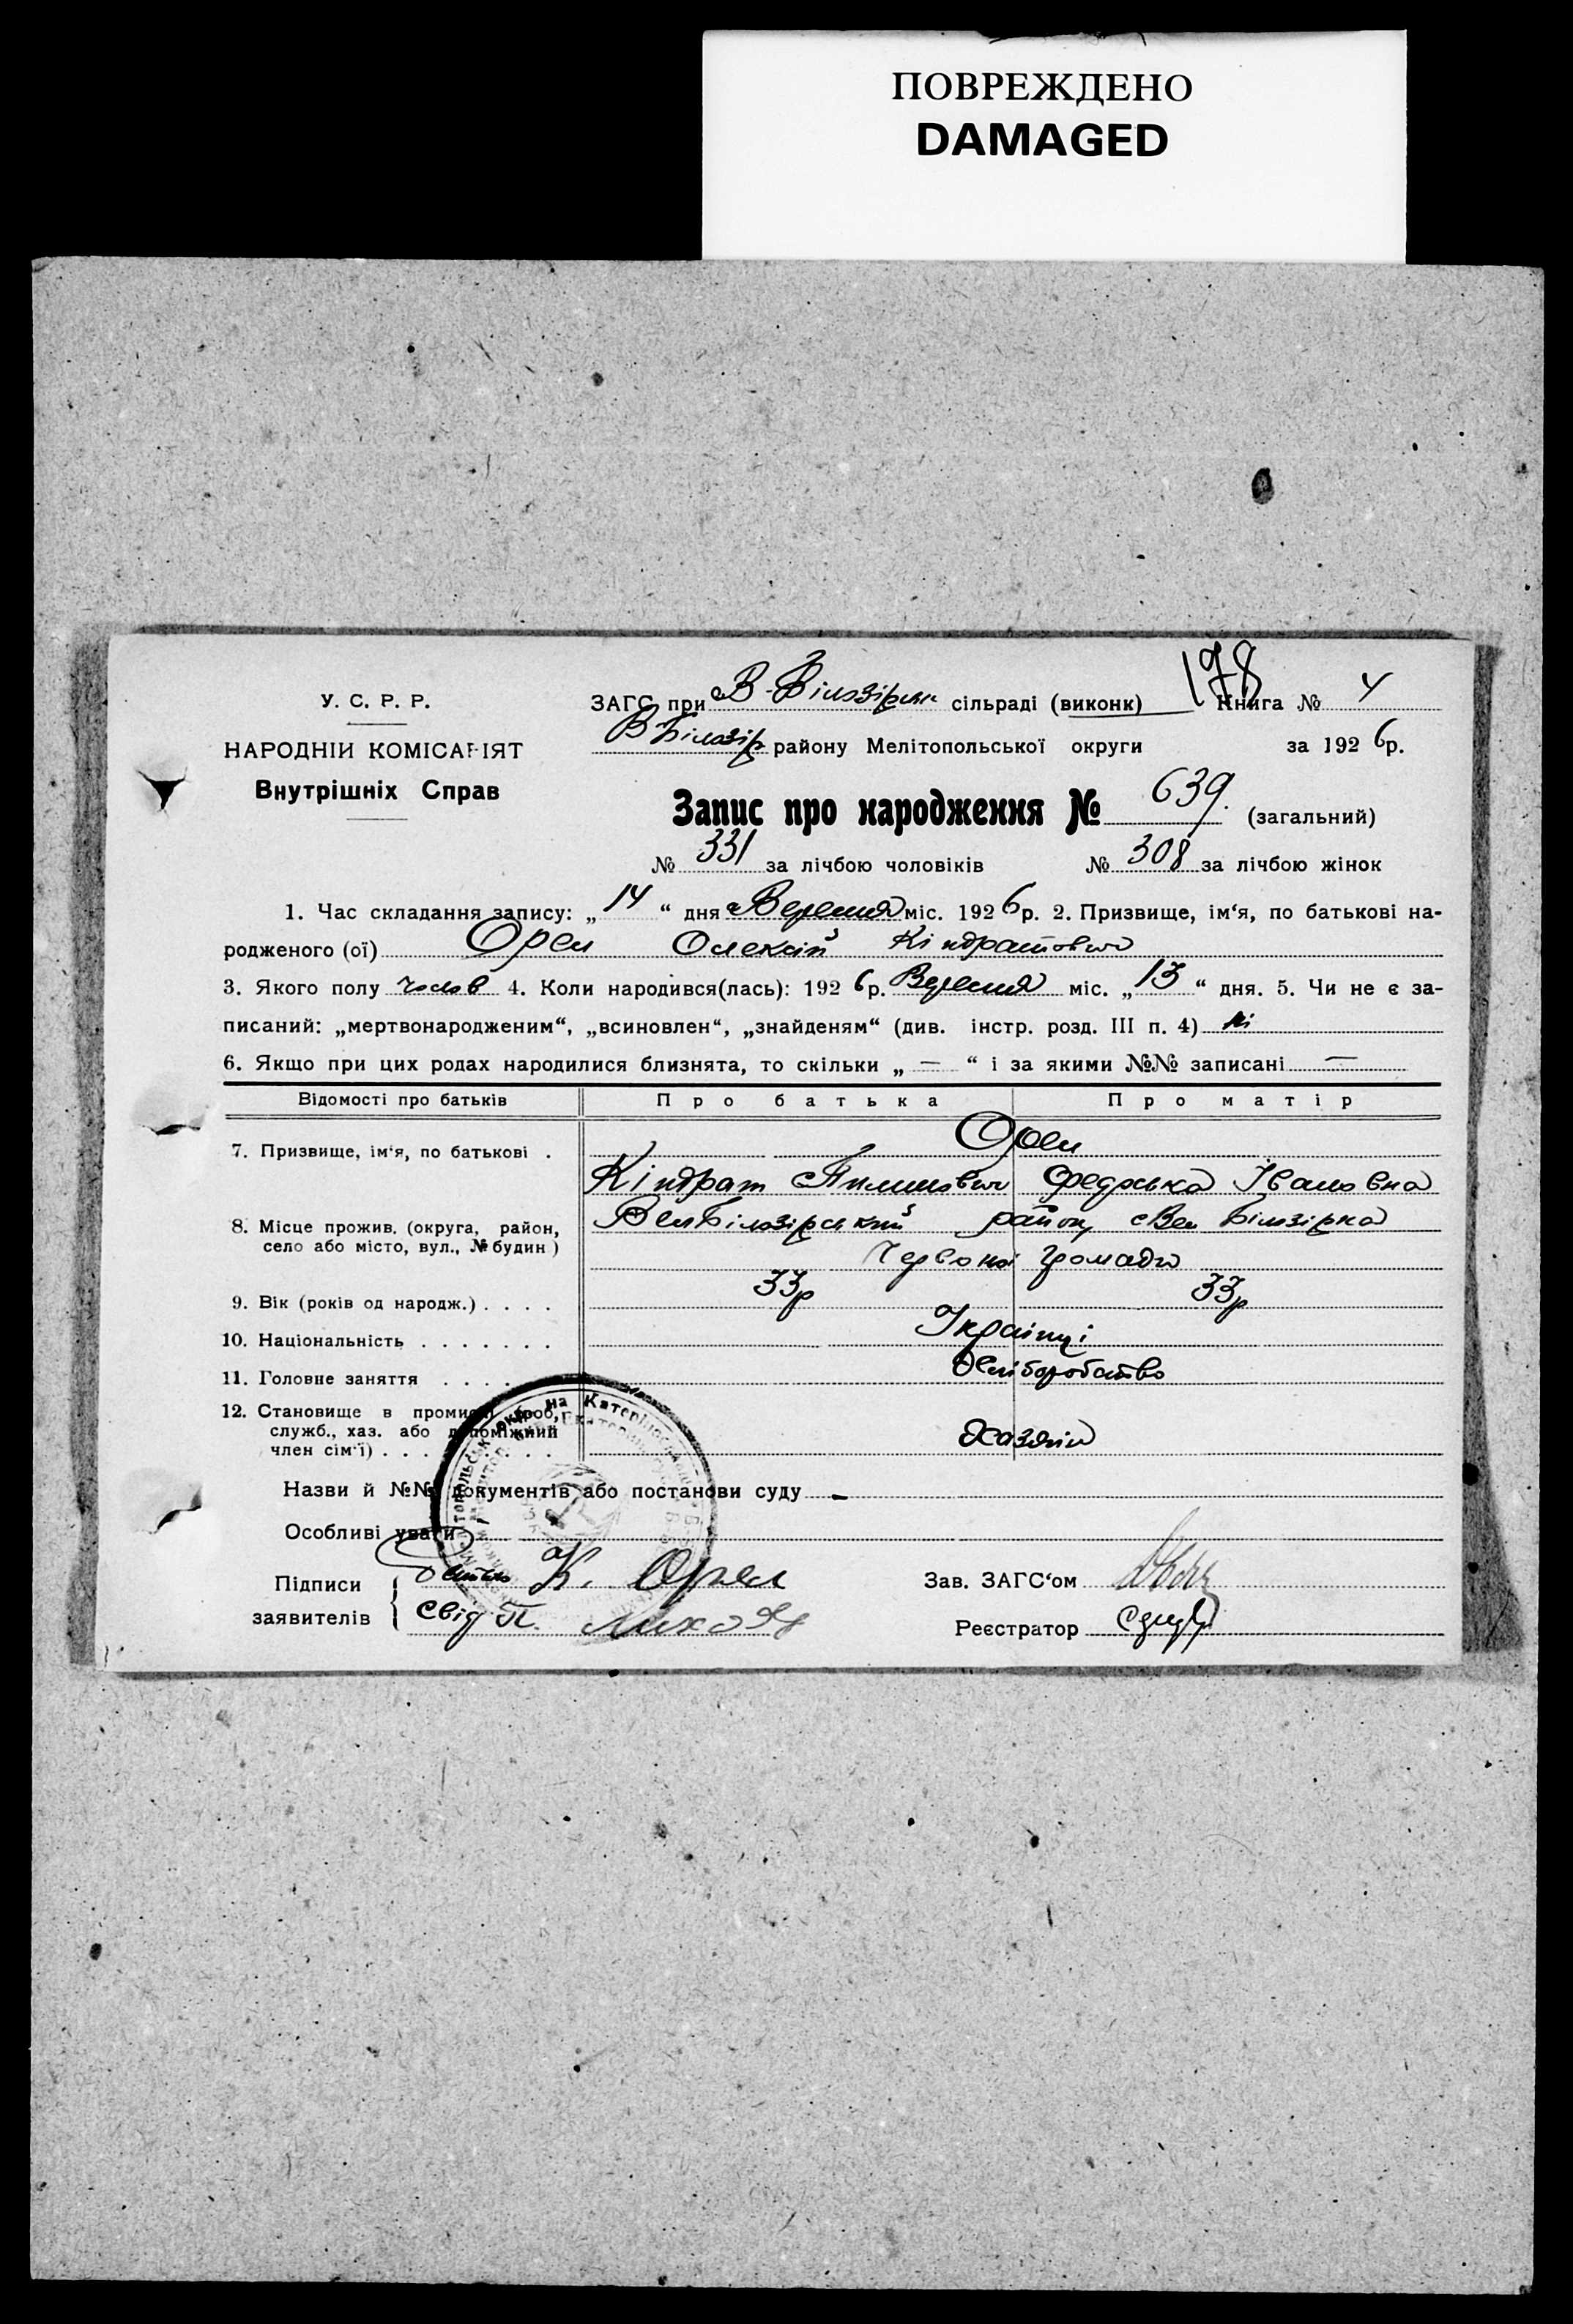 ПОВРЕЖДЕНО
DAMAGED
178
У. С. Р. Р.
ЗАГС при В-Білозірськ сільраді (виконк) Книга № 4
НАРОДНІЙ КОМІСАРІЯТ
В Білозір району Мелітопольської округи за 1926р.
Внутрішніх Справ
Запис про народження № 639. (загальний)
№ 331 за лічбою чоловіків № 308 за лічбою жінок
1. Час складання запису: „14“ дня Вересня міс. 1926р. 2. Призвище, ім‘я, по батькові на-
родженого (ої) Орел Олексій Кіндратович
3. Якого полу чолов 4. Коли народився(лась): 1926р. Вересня міс. „13“ дня. 5. Чи не є за-
писаний: „мертвонародженим“, „всиновлен“, „знайденям“ (див. інстр. розд. III п. 4) ні
6. Якщо при цих родах народилися близнята, то скільки „ — “ і за якими №№ записані —
Відомості про батьків Про батька Про матір
Орел
7. Призвище, ім‘я, по батькові .
Кіндрат Пилипович Федоська Івановна
8. Місце прожив. (округа, район, ВелБілозірський район, Вел Білозірка
село або місто, вул., № будин)
Червоної Громади
9. Вік (років од народж.) . . . . 33р 33р
10. Національність . . . . . . . Українці
11. Головне заняття . . . . Хліборобство
12. Становище в промислі (роб,
служб., хаз. або допоміжний
член сім‘ї) . . . Хазяїн
Назви й №№ документів або постанови суду -
Особливі уваги
Підписи
заявителів
батько К. Орел
Зав. ЗАГС‘ом
свід П.
Реєстратор